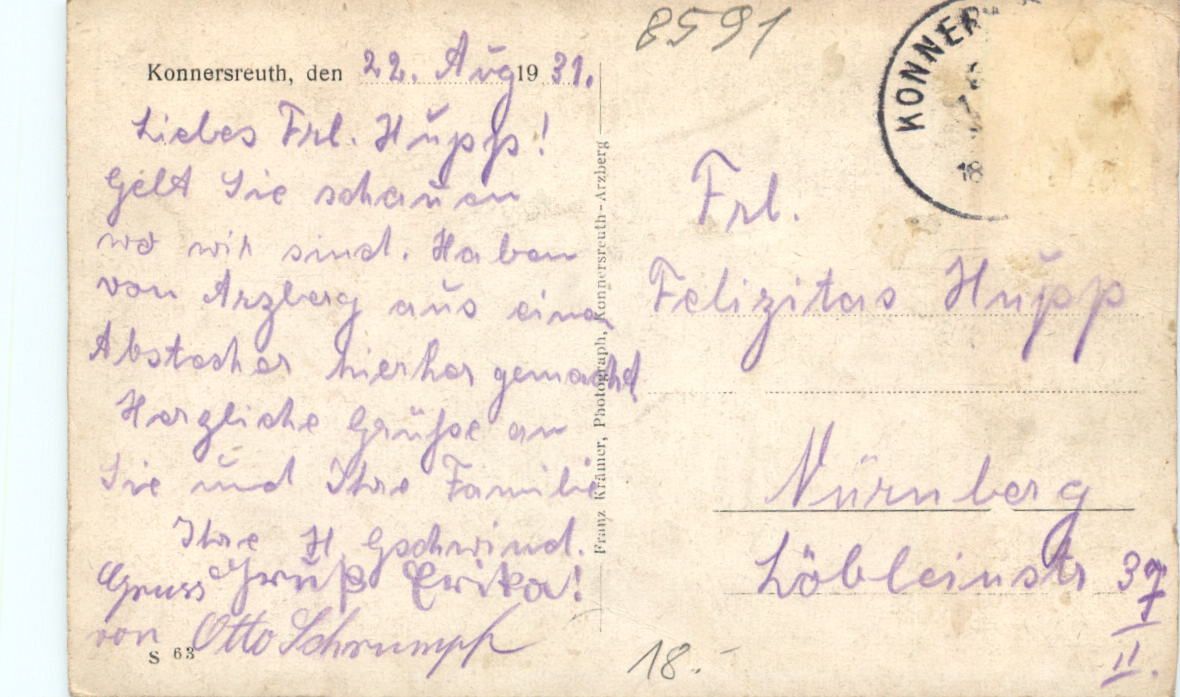 8591
Konnersreuth, den 22. Aug 1931.
Liebes Frl. Hupp!
Gelt Sie schauen
wo wir sind. Haben
von Arzberg aus einen
Abstecher hierher gemacht
Herzliche Grüße an
Sie und Ihre Familie
Ihre H. Gschwind.
Gruss Gruß Erika!
von Otto Schrumpf
S 63
Franz Krämer, Photograph, Konnersreuth-Arzberg
KONNER
18
Frl.
Felizitas Hupp
Nürnberg
Löbleinstr 37
II.
18.-